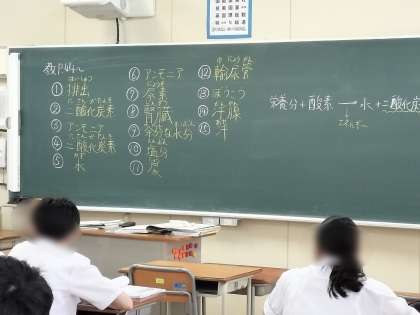 教P.124~
はいしゅつ
① 排出
にさんかたんそ
② 二酸化炭素
③ アンモニア
にさんかたんそ
④ 二酸化炭素
⑤ 水
⑥ アンモニア
⑦ 尿素
⑧ 腎臓
⑨ 余分な水分
⑩ 塩分
⑪ 尿
⑫ 輸尿管
⑬ ぼうこう
⑭ 汗腺
⑮ 汗
栄養分+酸素 → 水+二酸化炭
↓
エネルギー